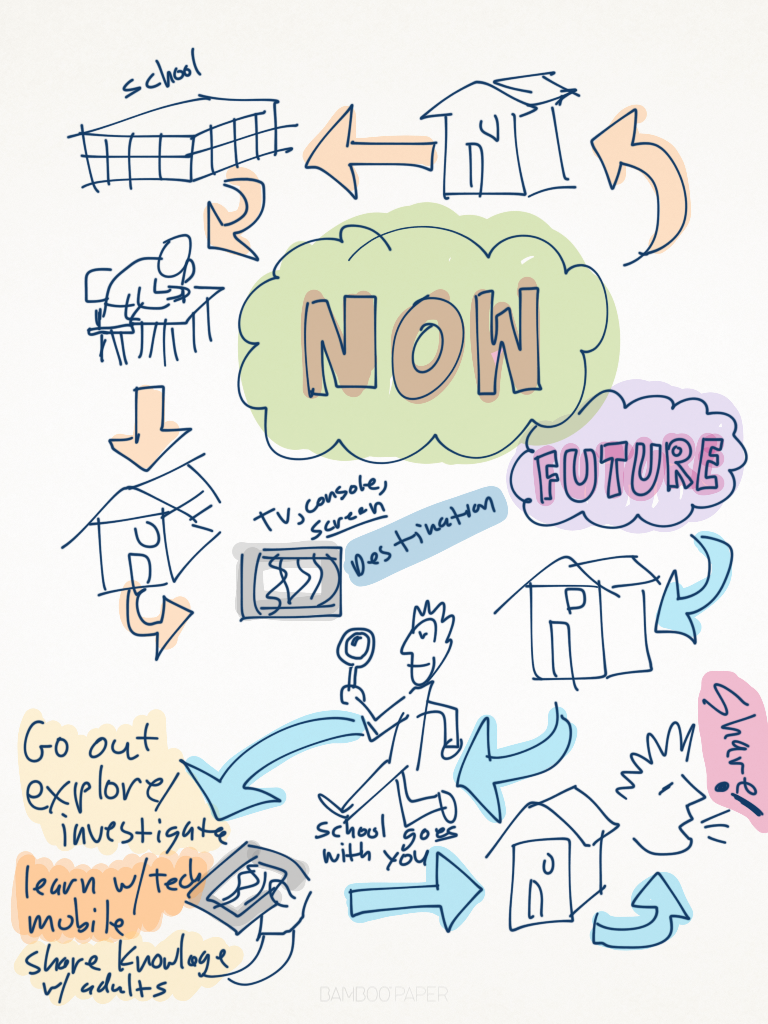 school
NOW
FUTURE
TV, console,
screen
Destination
Share!
Go out
explore/
investigate
school goes
with you
learn w/ tech
mobile
share knowlage
w/ adults
BAMBOO PAPER